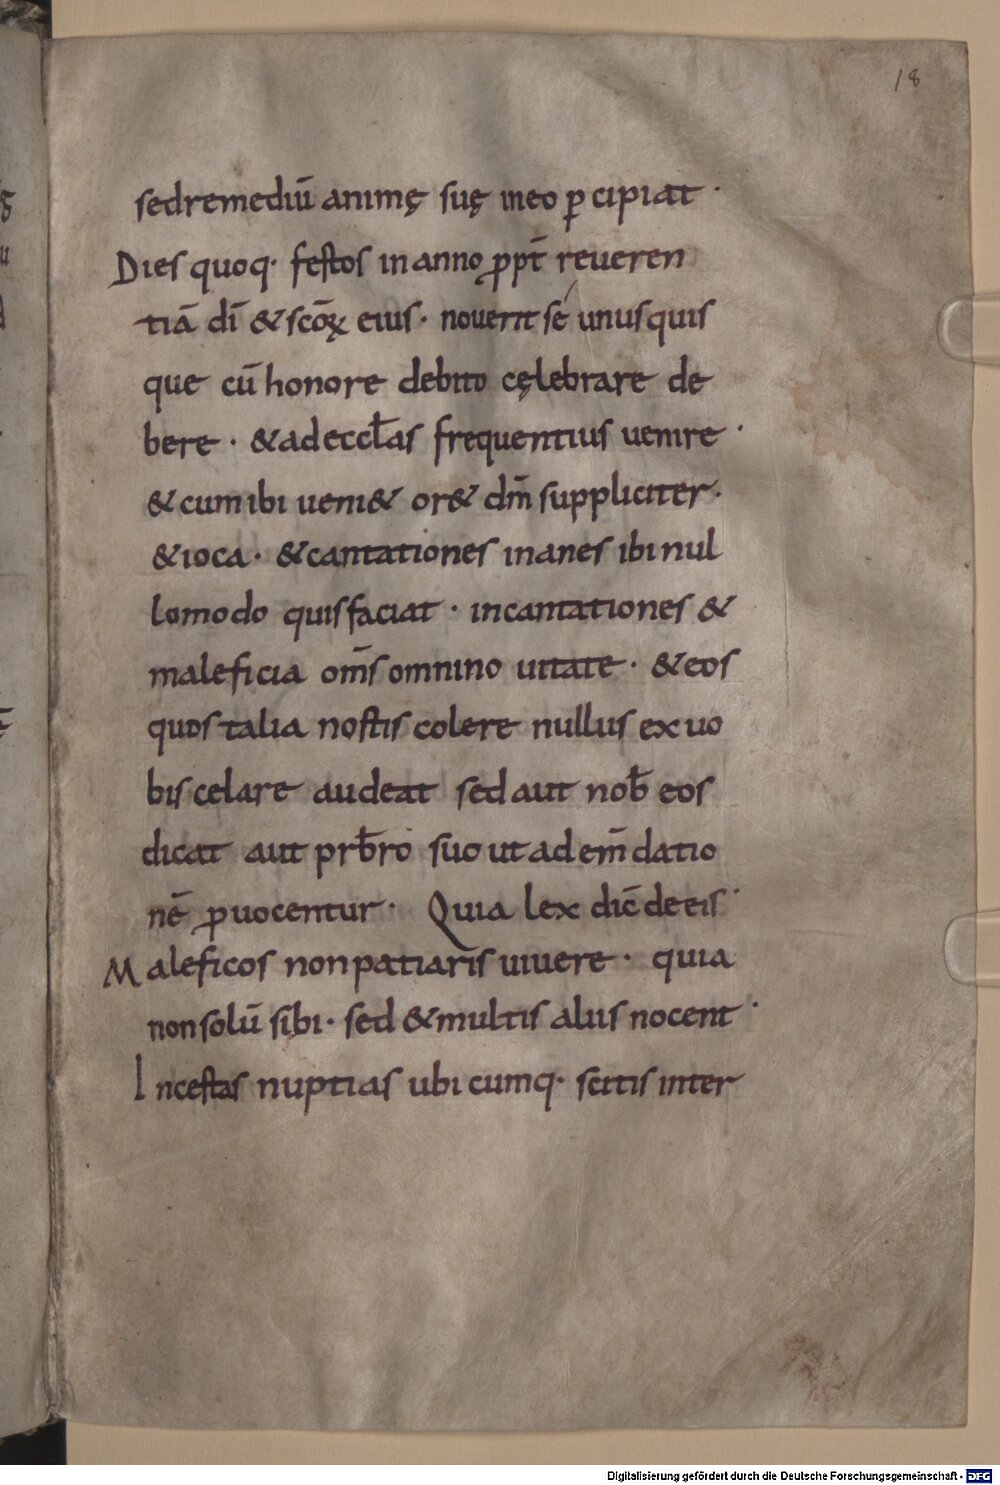 18
sedremediū animę suę ineo ꝑcipiat ·
Dies quoq· festos in anno ꝓpt̄ reueren
tiā dī & scōꝝ eius · nouerit sé unusquis
que cū honore debito cęlebrare de
bere · & ad eccl̄as frequentius uenire ·
& cum ibi ueni& or& dm̄ suppliciter·
& ioca · & cantationes inanes ibi nul
lomodo quis faciat · incantationes &
maleficia om̄s omnino uitate · & eos
quos talia nostis colere nullus ex uo
bis celare audeat sed aut nob̄ eos
dicat aut prb̄ro suo ut ad em̄datio
nē ꝓuocentur · Quia lex dic̄ de eis ·
Maleficos non patiaris uiuere · quia
non solū sibi · sed & multis aliis nocent ·
Incestas nuptias ubi cumq· scitis inter
Digitalisierung gefördert durch die Deutsche Forschungsgemeinschaft - DFG